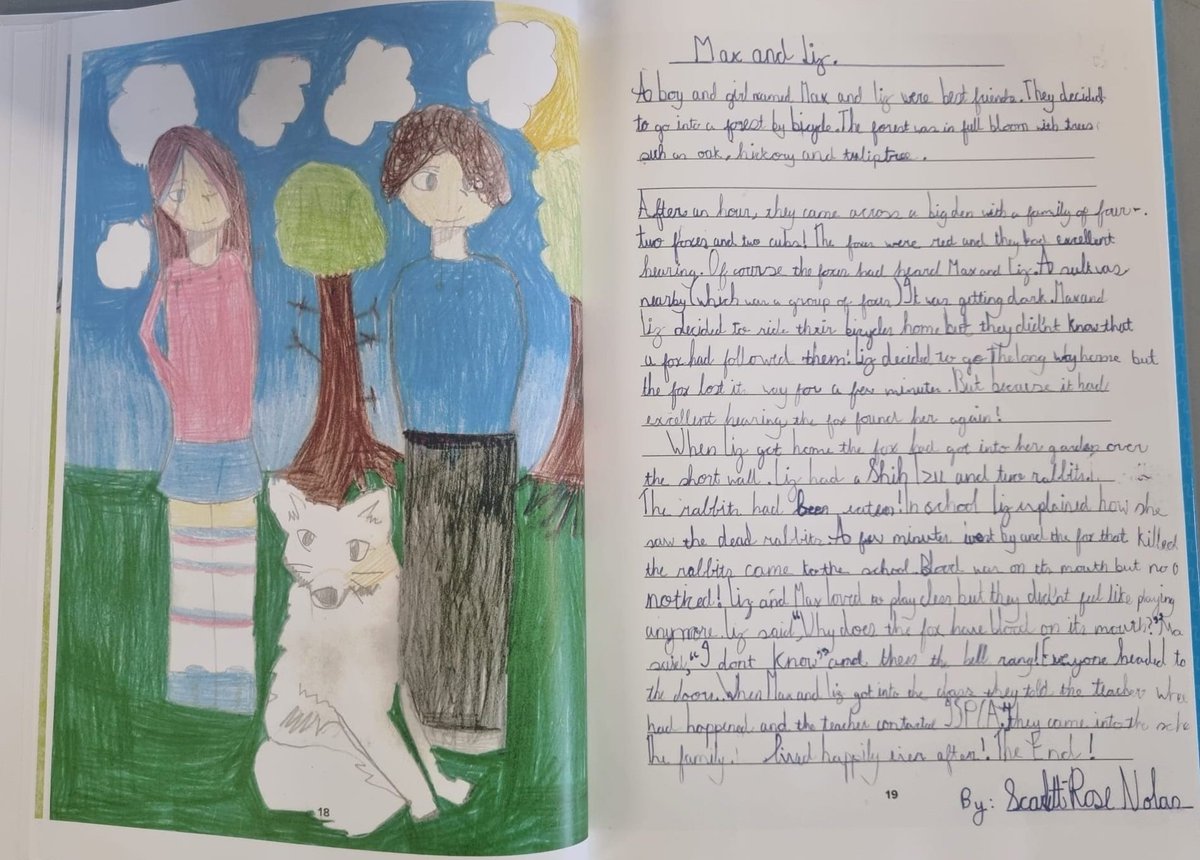 Max and Liz.
A boy and girl named Max and Liz were best friends. They decided
to go into a forest by bicycle. The forest was in full bloom with trees
such as oak, hickory and tuliptree.
After an hour, they came across a big den with a family of four-
two foxes and two cubs! The foxes were red and they had excellent
hearing. Of course the foxes had heard Max and Liz. A sulk was
nearby (which was a group of foxes) It was getting dark. Max and
Liz decided to ride their bicycles home but they did'nt know that
a fox had followed them! Liz decided to go The long way home but
the fox lost it way for a few minutes. But because it had
excellent hearing the fox found her again!
When Liz got home the fox had got into her garden over
the short wall. Liz had a Shih Tzu and two rabbits!
The rabbits had been eaten! In school Liz explained how she
saw the dead rabbits. A few minutes went by and the fox that killed
the rabbits came to the school. Blood was on its mouth but no o
noticed! Liz and Max loved to play but they did'nt feel like playing
anymore. Liz said, "Why does the fox have blood on its mouth?" Ma
said, "I dont know" and then the bell rang! Everyone headed to
the doors. When Max and Liz got into the class they told the teacher
had happened and the teacher contacted they came into the
The family lived happily ever after! The End!
By: Scarlett Rose Nolan
18
19